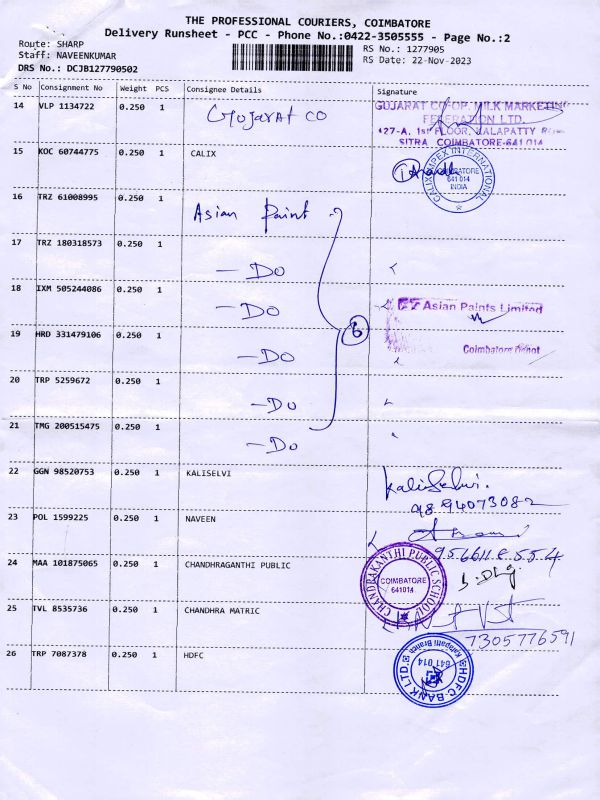 THE PROFESSIONAL COURIERS, COIMBATORE
Delivery Runsheet - PCC - Phone No.:0422-3505555 - Page No.:2
Route: SHARP
Staff: NAVEENKUMAR
DRS No.: DCJB127790502
RS No.: 1277905
RS Date: 22-Nov-2023
S No Consignment No Weight PCS Consignee Details Signature
14 VLP 1134722 0.250 1 Gujarat CO
GUJARAT CO-OP. MILK MARKETING
FEDERATION LTD.
127-A, 1st FLOOR, KALAPATTY
SITRA, COIMBATORE-641 014
15 KOC 60744775 0.250 1 CALIX
CALIX IMPEX INTERNATIONAL
COIMBATORE
641 014
INDIA
16 TRZ 61008995 0.250 1 Asian Paint
17 TRZ 180318573 0.250 1 - Do
18 IXM 505244086 0.250 1 - Do
6
Asian Paints Limited
Coimbatore Depot
19 HRD 331479106 0.250 1 - Do
20 TRP 5259672 0.250 1 - Do
21 TMG 200515475 0.250 1 - Do
22 GGN 98520753 0.250 1 KALISELVI
KaliSelvi.
9894073082
23 POL 1599225 0.250 1 NAVEEN
24 MAA 101875065 0.250 1 CHANDHRAGANTHI PUBLIC
CHANDRAKANTHI PUBLIC SCHOOL
COIMBATORE
641014
25 TVL 8535736 0.250 1 CHANDHRA MATRIC
7305776591
26 TRP 7087378 0.250 1 HDFC
HDFC BANK LTD.
Kalapatti Branch
641 014